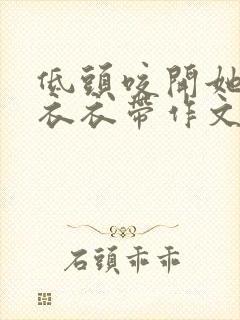 低頭咬開她
衣衣帶作文
石頭乖乖